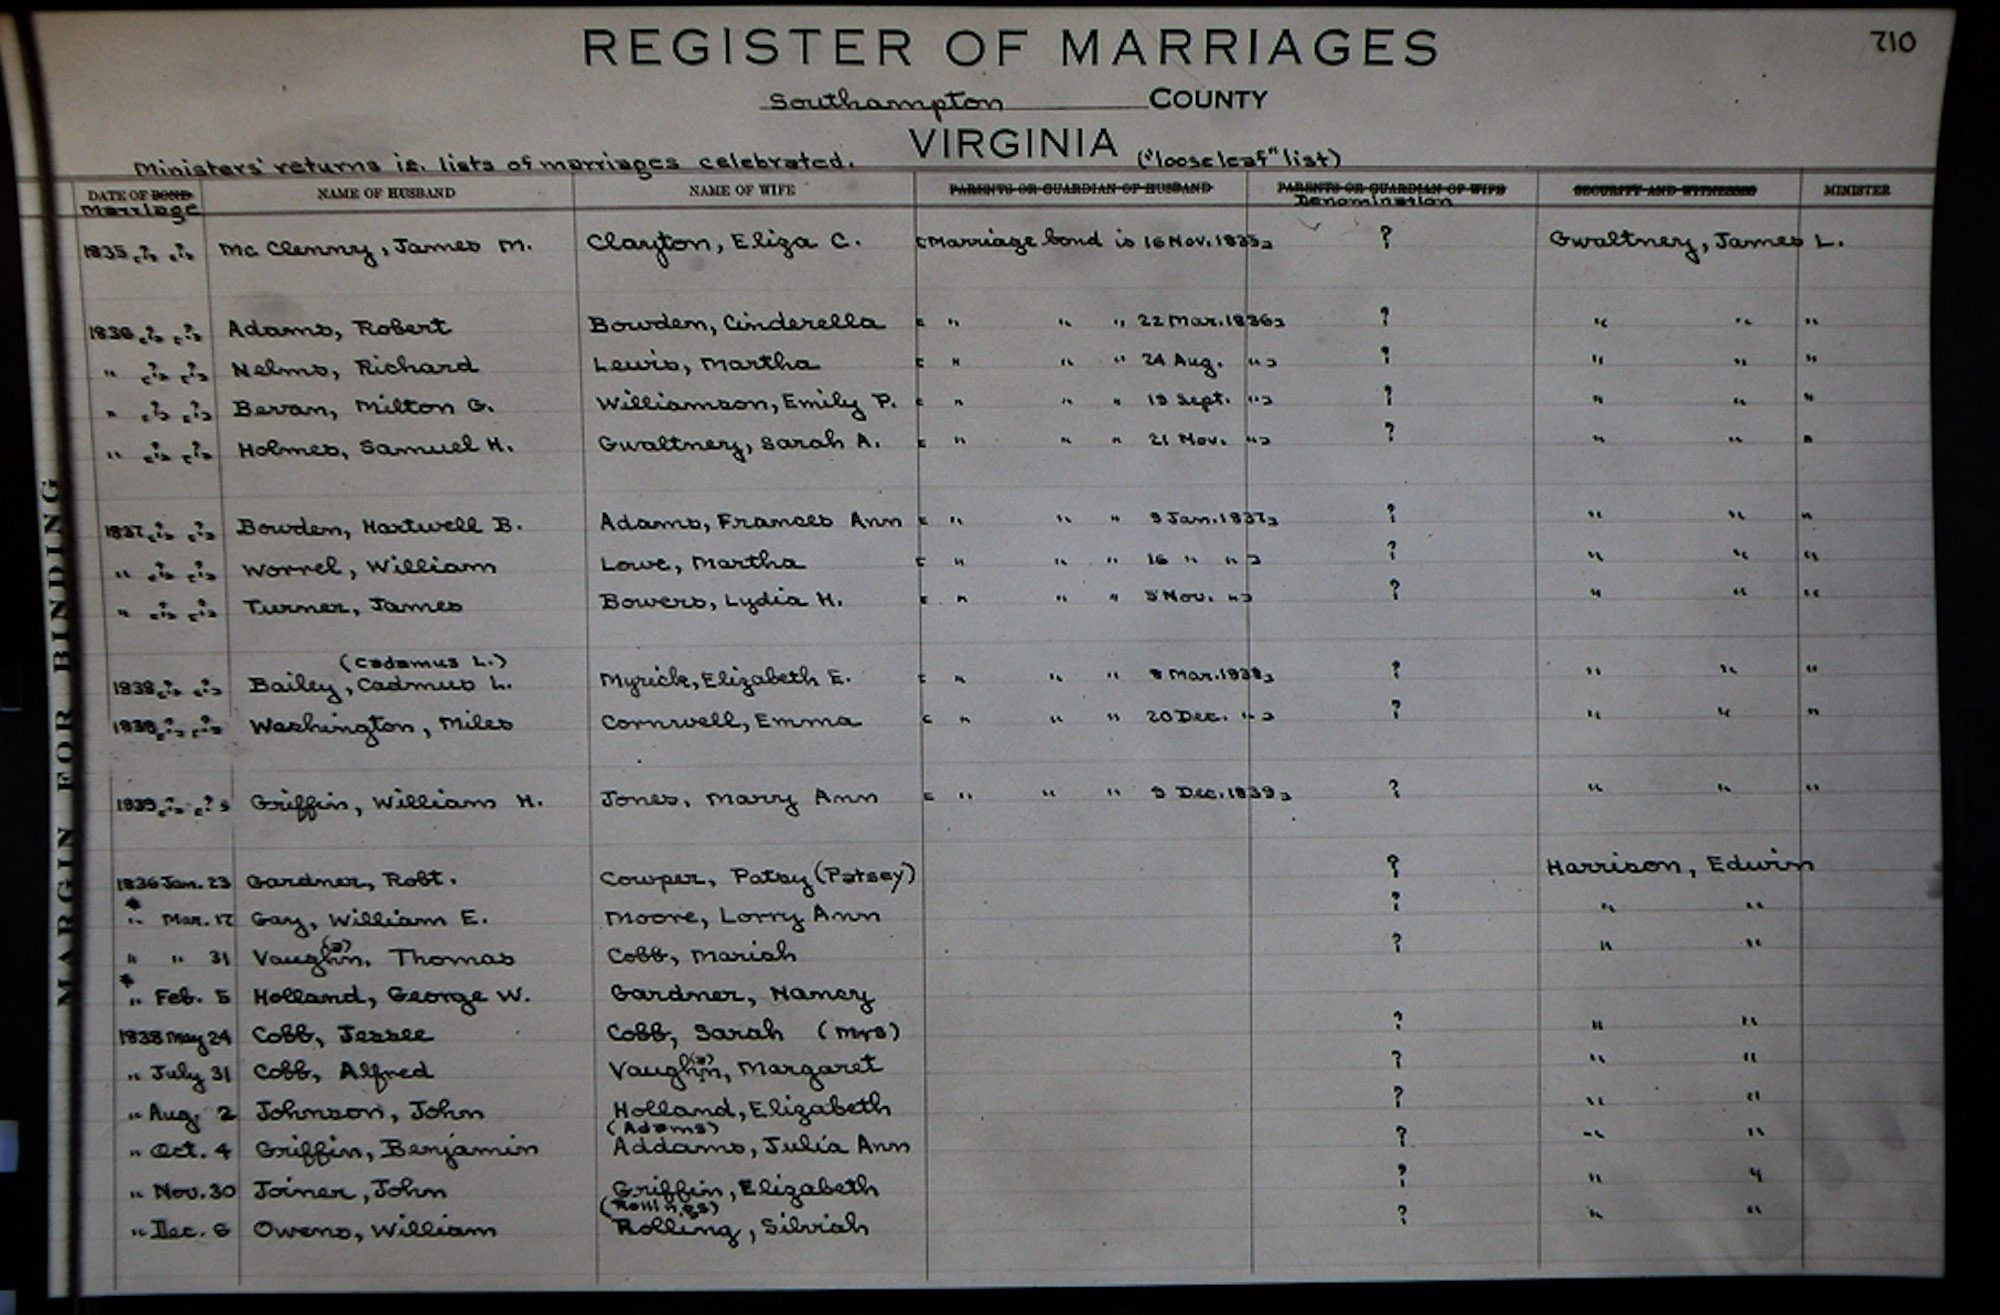 REGISTER OF MARRIAGES
710
Southampton COUNTY
VIRGINIA
Ministers' returns ie. lists of marriages celebrated. ("loose leaf" list)
DATE OF BOND NAME OF HUSBAND NAME OF WIFE PARENTS OR GUARDIAN OF HUSBAND PARENTS OR GUARDIAN OF WIFE SECURITY AND WITNESSES MINISTER
Marriage Denomination
1835 [?] [?] Mc Clenny, James M. Clayton, Eliza C. [Marriage bond is 16 Nov. 1835] ? Gwaltney, James L.
1836 [?] [?] Adams, Robert Bowden, Cinderella [ " " " 22 Mar. 1836] ? " " "
" [?] [?] Nelms, Richard Lewis, Martha [ " " " 24 Aug. " ] ? " " "
" [?] [?] Bevan, Milton G. Williamson, Emily P. [ " " " 19 Sept. " ] ? " " "
" [?] [?] Holmes, Samuel H. Gwaltney, Sarah A. [ " " " 21 Nov. " ] ? " " "
1837 [?] [?] Bowden, Hartwell B. Adams, Frances Ann [ " " " 9 Jan. 1837] ? " " "
" [?] [?] Worrel, William Lowe, Martha [ " " " 16 " " ] ? " " "
" [?] [?] Turner, James Bowers, Lydia H. [ " " " Nov. " ] ? " " "
(Cadamus L.)
1838 [?] [?] Bailey, Cadmus L. Myrick, Elizabeth E. [ " " " Mar. 1838] ? " " "
1838 [?] [?] Washington, Miles Cornwell, Emma [ " " " 20 Dec. " ] ? " " "
1839 [?] [?] Griffin, William H. Jones, Mary Ann [ " " " 9 Dec. 1839] ? " " "
1836 Jan. 23 Gardner, Robt. Cowper, Patsy (Patsey) ? Harrison, Edwin
* " Mar. 17 Gay, William E. Moore, Lorry Ann ? " "
" " 31 Vaughn(a), Thomas Cobb, Mariah ? " "
* " Feb. 5 Holland, George W. Gardner, Nancy
1838 May 24 Cobb, Jessee Cobb, Sarah (Mrs) ? " "
" July 31 Cobb, Alfred Vaughn(a), Margaret ? " "
" Aug. 2 Johnson, John Holland, Elizabeth ? " "
(Adams)
" Oct. 4 Griffin, Benjamin Addams, Julia Ann ? " "
" Nov. 30 Joiner, John Griffin, Elizabeth ? " "
(Rollings)
" Dec. 6 Owens, William Rolling, Silviah ? " "
MARGIN FOR BINDING